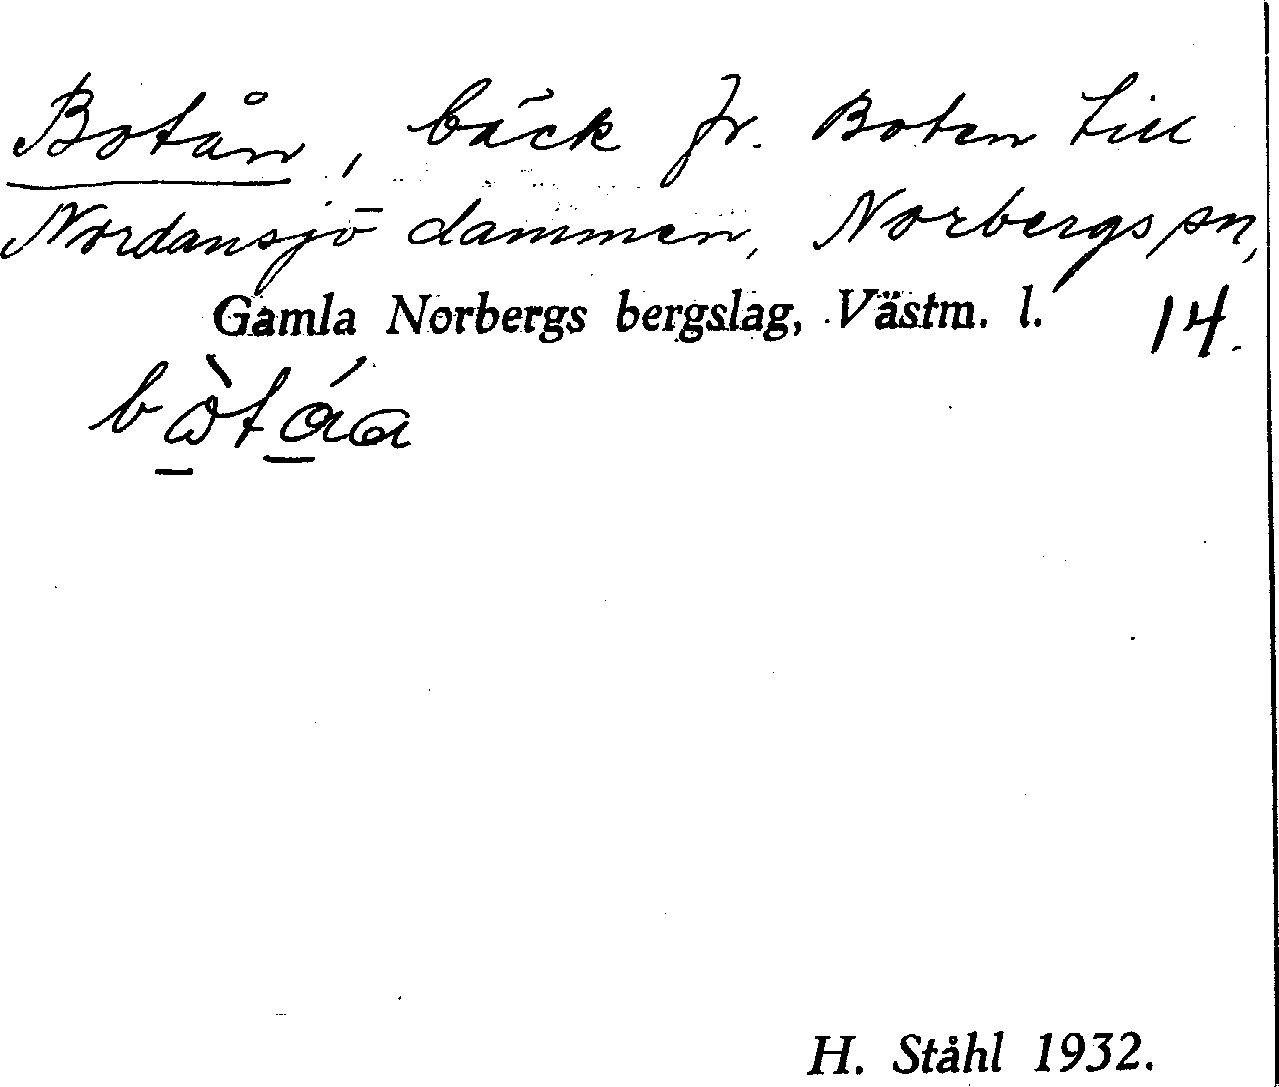 Botån, bäck fr. Boten till
Nordansjödammen, Norbergs sn,
Gamla Norbergs bergslag, Västm. l. 14.
H. Ståhl 1932.